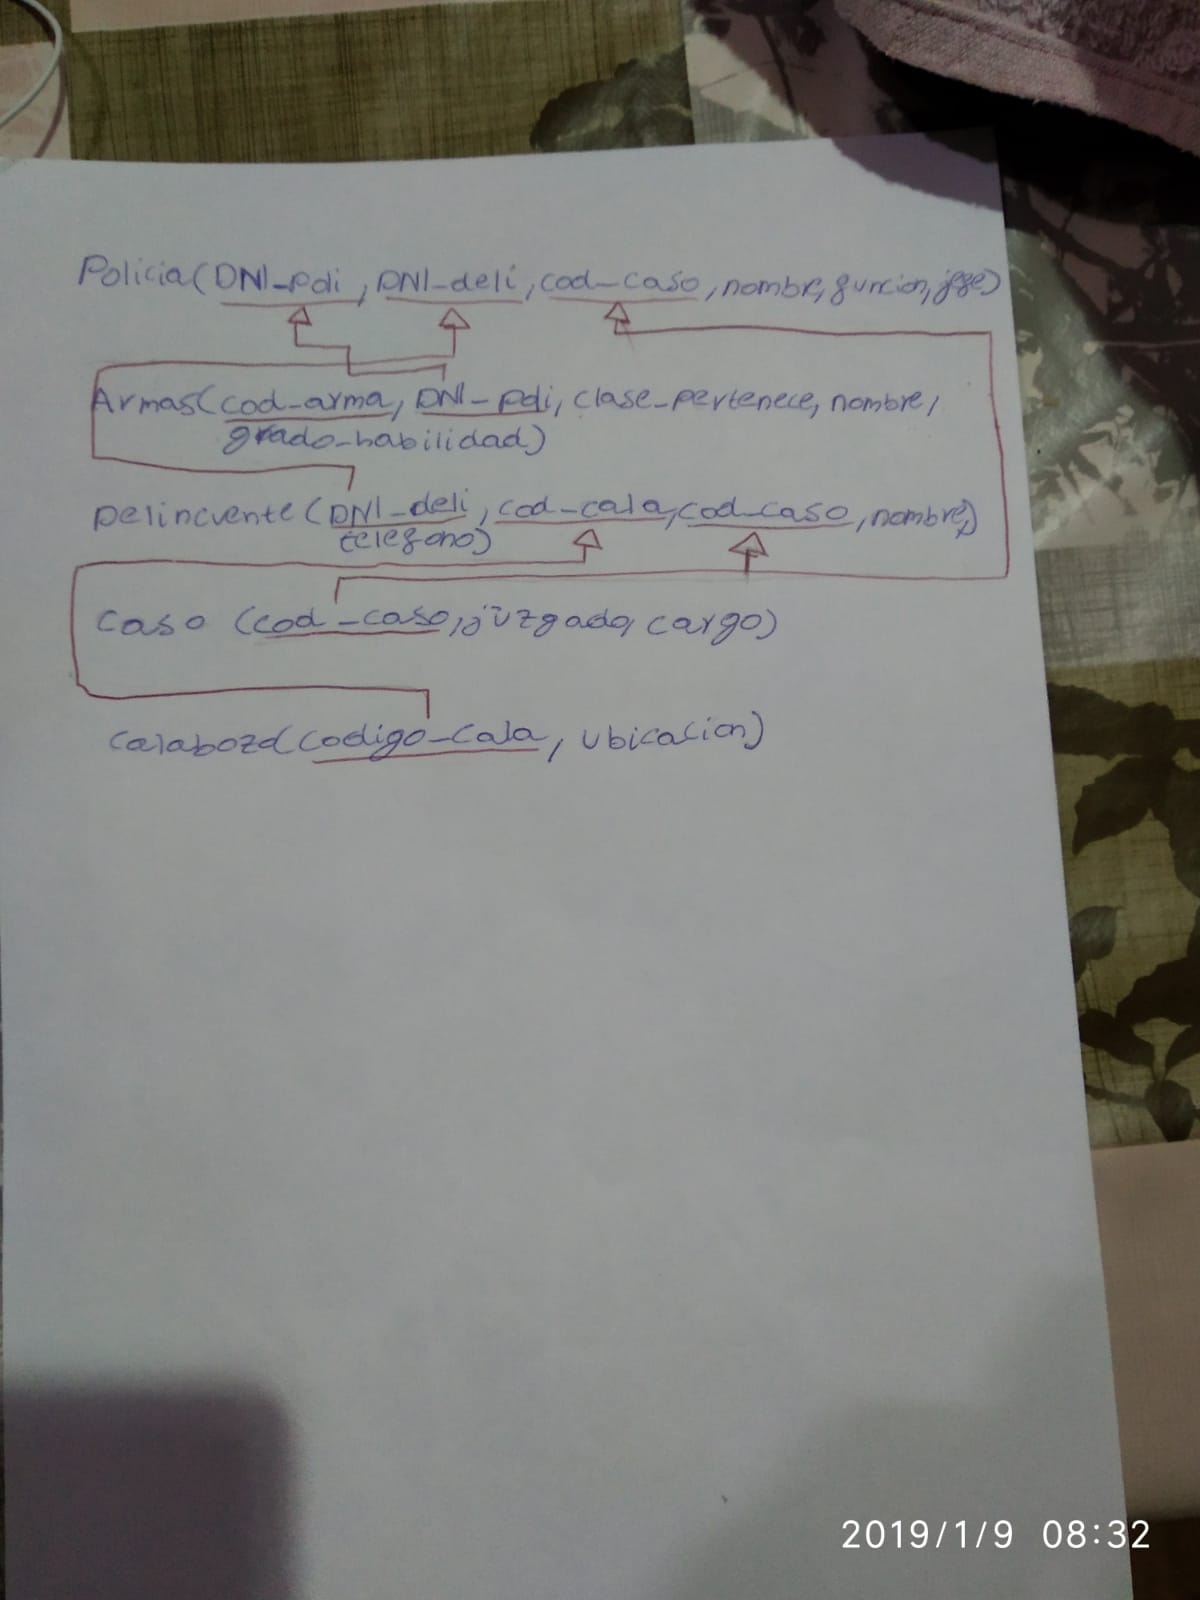 Policia(DNI-pdi, DNI-deli, cod-caso, nombre, funcion, jefe)
Armas(cod-arma, DNI-pdi, clase-pertenece, nombre,
grado-habilidad)
Delincuente(DNI-deli, cod-cala, cod-caso, nombre,
telefono)
Caso (cod-caso, juzgado, cargo)
Calabozo(codigo-cala, ubicacion)
2019/1/9 08:32